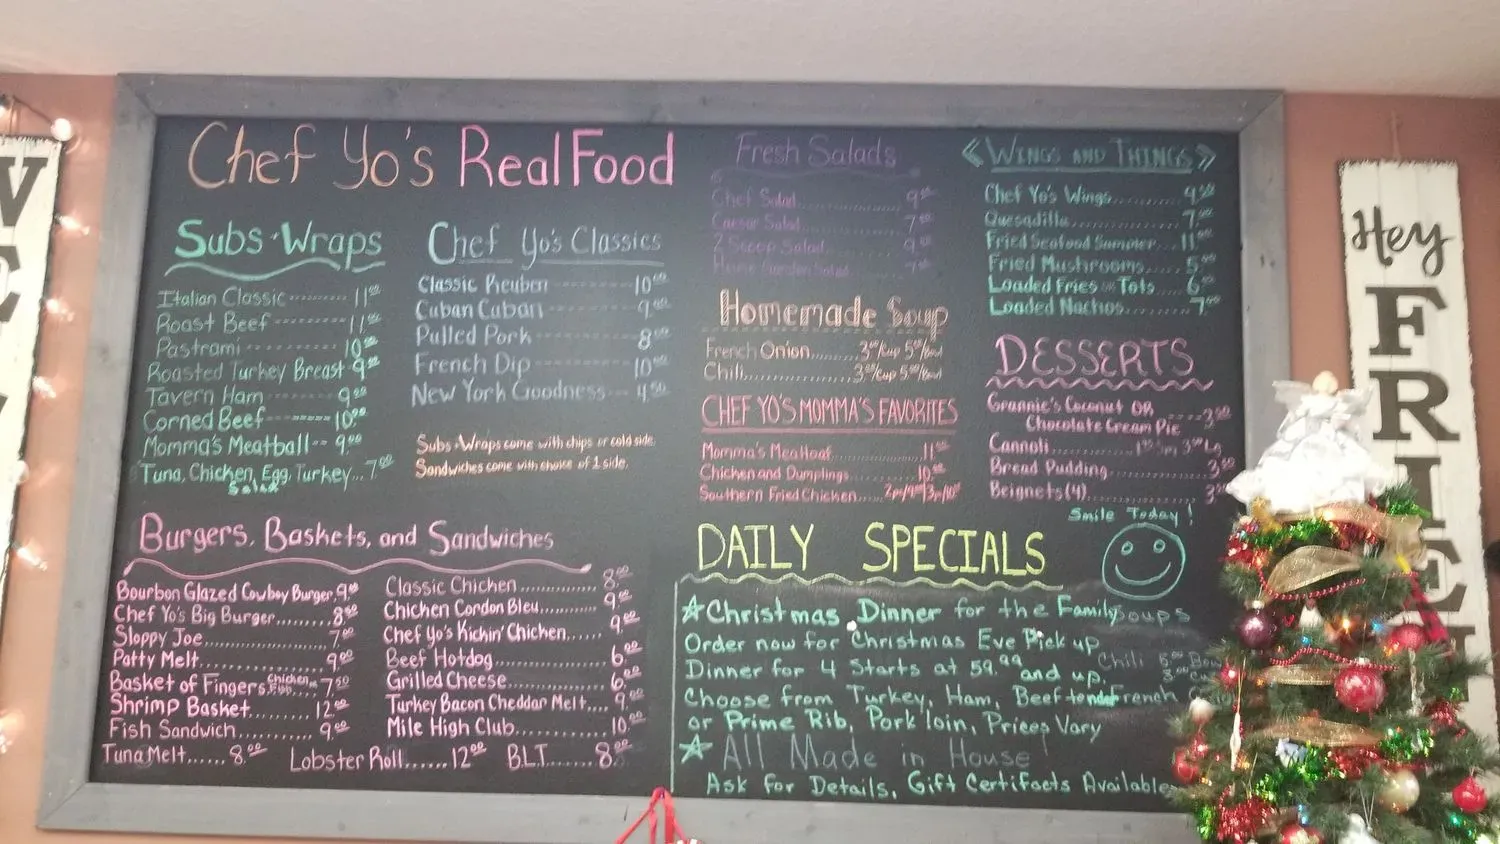 Chef Yo's Real Food
Subs · Wraps
Italian Classic --------- 11.00
Roast Beef ------------- 11.00
Pastrami ------------- 10.00
Roasted Turkey Breast - 9.00
Tavern Ham --------- 9.00
Corned Beef -------- 10.00
Momma's Meatball -- 9.00
Tuna, Chicken, Egg, Turkey... 7.00
Salad
Chef Yo's Classics
Classic Reuben ----------- 10.00
Cuban Cuban ------------ 9.00
Pulled Pork ------------- 8.00
French Dip ------------- 10.00
New York Goodness --- 4.50
Subs + Wraps come with chips or cold side.
Sandwiches come with choice of 1 side.
Burgers, Baskets, and Sandwiches
Bourbon Glazed Cowboy Burger. 9.00
Chef Yo's Big Burger......... 8.50
Sloppy Joe..................... 7.00
Patty Melt..................... 9.00
Basket of Fingers Chicken or Fish... 7.50
Shrimp Basket......... 12.00
Fish Sandwich........... 9.00
Tuna Melt...... 8.00
Lobster Roll...... 12.00
B.L.T....... 8.00
Classic Chicken............... 8.00
Chicken Cordon Bleu.......... 9.00
Chef Yo's Kickin' Chicken...... 9.00
Beef Hotdog.................. 6.00
Grilled Cheese................ 6.00
Turkey Bacon Cheddar Melt.... 9.00
Mile High Club................ 10.00
Fresh Salads
Chef Salad................ 9.00
Caesar Salad............. 7.00
2 Scoop Salad........... 9.00
Home Garden Salad
Homemade Soup
French Onion......... 3.00/cup 5.00/bowl
Chili................... 3.00/cup 5.00/bowl
CHEF YO'S MOMMA'S FAVORITES
Momma's Meatloaf................ 11.00
Chicken and Dumplings............ 10.00
Southern Fried Chicken......
« WINGS AND THINGS »
Chef Yo's Wings........... 4.50
Quesadilla................. 7.00
Fried Seafood Summer... 11.00
Fried Mushrooms...... 5.00
Loaded Fries or Tots..... 6.00
Loaded Nachos........... 7.00
DESSERTS
Grannie's Coconut OR
Chocolate Cream Pie ---- 3.50
Cannoli
Bread Pudding............... 3.50
Beignets (4)
Smile Today!
DAILY SPECIALS
☆ Christmas Dinner for the Family soups
Order now for Christmas Eve Pick up
Dinner for 4 Starts at 59.99 and up. Chili
Choose from Turkey, Ham, Beef tender French
or Prime Rib, Pork loin, Prices Vary
☆ All Made in House!
Ask for Details, Gift Certifacts Available
Hey